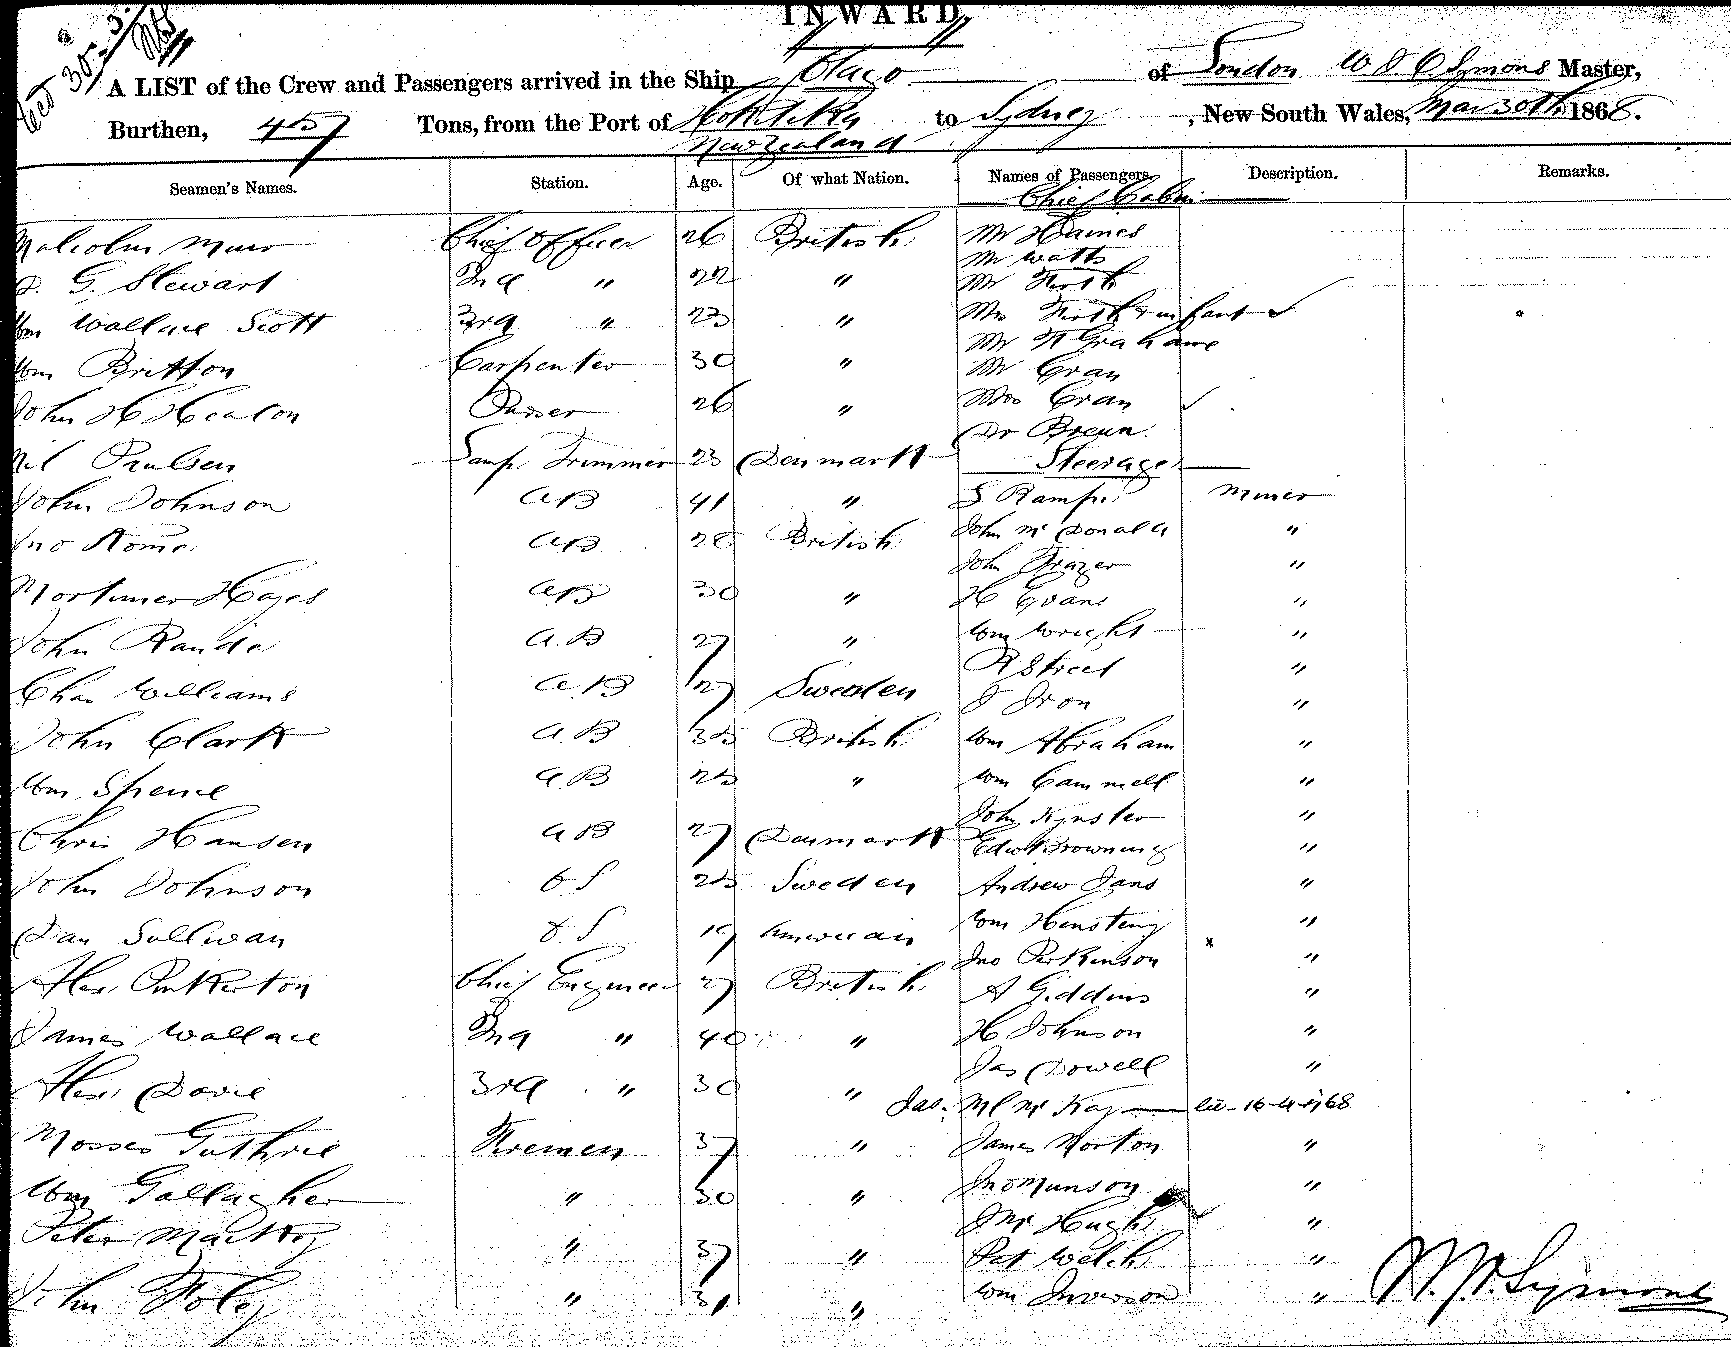 INWARD
A LIST of the Crew and Passengers arrived in the Ship Otago of London W J C Symons Master,
Burthen, 457 Tons, from the Port of Hokitika to Sydney, New South Wales, Mar 30th 1868.
New Zealand
Seamen's Names. Station. Age. Of what Nation. Names of Passengers. Description. Remarks.
Chief Cabin
Malcolm Muir Chief Officer 26 British Mr Haines
Mr Watts
G. Stewart 2nd " 22 " Mr
Wm Wallace Scott 3rd " 23 " Mrs & infant
Mr Grahame
Wm Britton Carpenter 30 " Mr Cran
John H Heaton 26 " Mrs Cran
Dr
Nil Paulsen Lamp Trimmer 23 Denmark Steerage
John Johnson AB 41 " S Ramp Miner
Jno AB 28 British John McDonald "
John Frazer "
Mortimer Hayes AB 30 " H Evans "
John A.B 27 " Wm Wright "
R Street "
Chas Williams A.B 27 Sweden J Iron "
John Clark A.B 35 British Wm Abraham "
Wm Spence A.B 25 " Wm Cammell "
John "
Chris Hansen A B 27 Denmark Edwd Browning "
John Johnson O S 25 Sweden Andrew Jans "
Dan Sullivan O.S 19 American Wm "
x
Jno Parkinson "
Alex. Pinkerton Chief Engineer 27 British A Giddins "
James Wallace 2nd " 40 " H Johnson "
Jas Dowell "
Alex. Davie 3rd " 30 " Jas. McKay
Mosses Guthrie Firemen 37 " James Norton "
Wm Gallagher " 30 " Jno Munson "
Hugh "
Peter " 37 " Pat Welch "
John Foley " 31 " Wm "
W. J. Symons